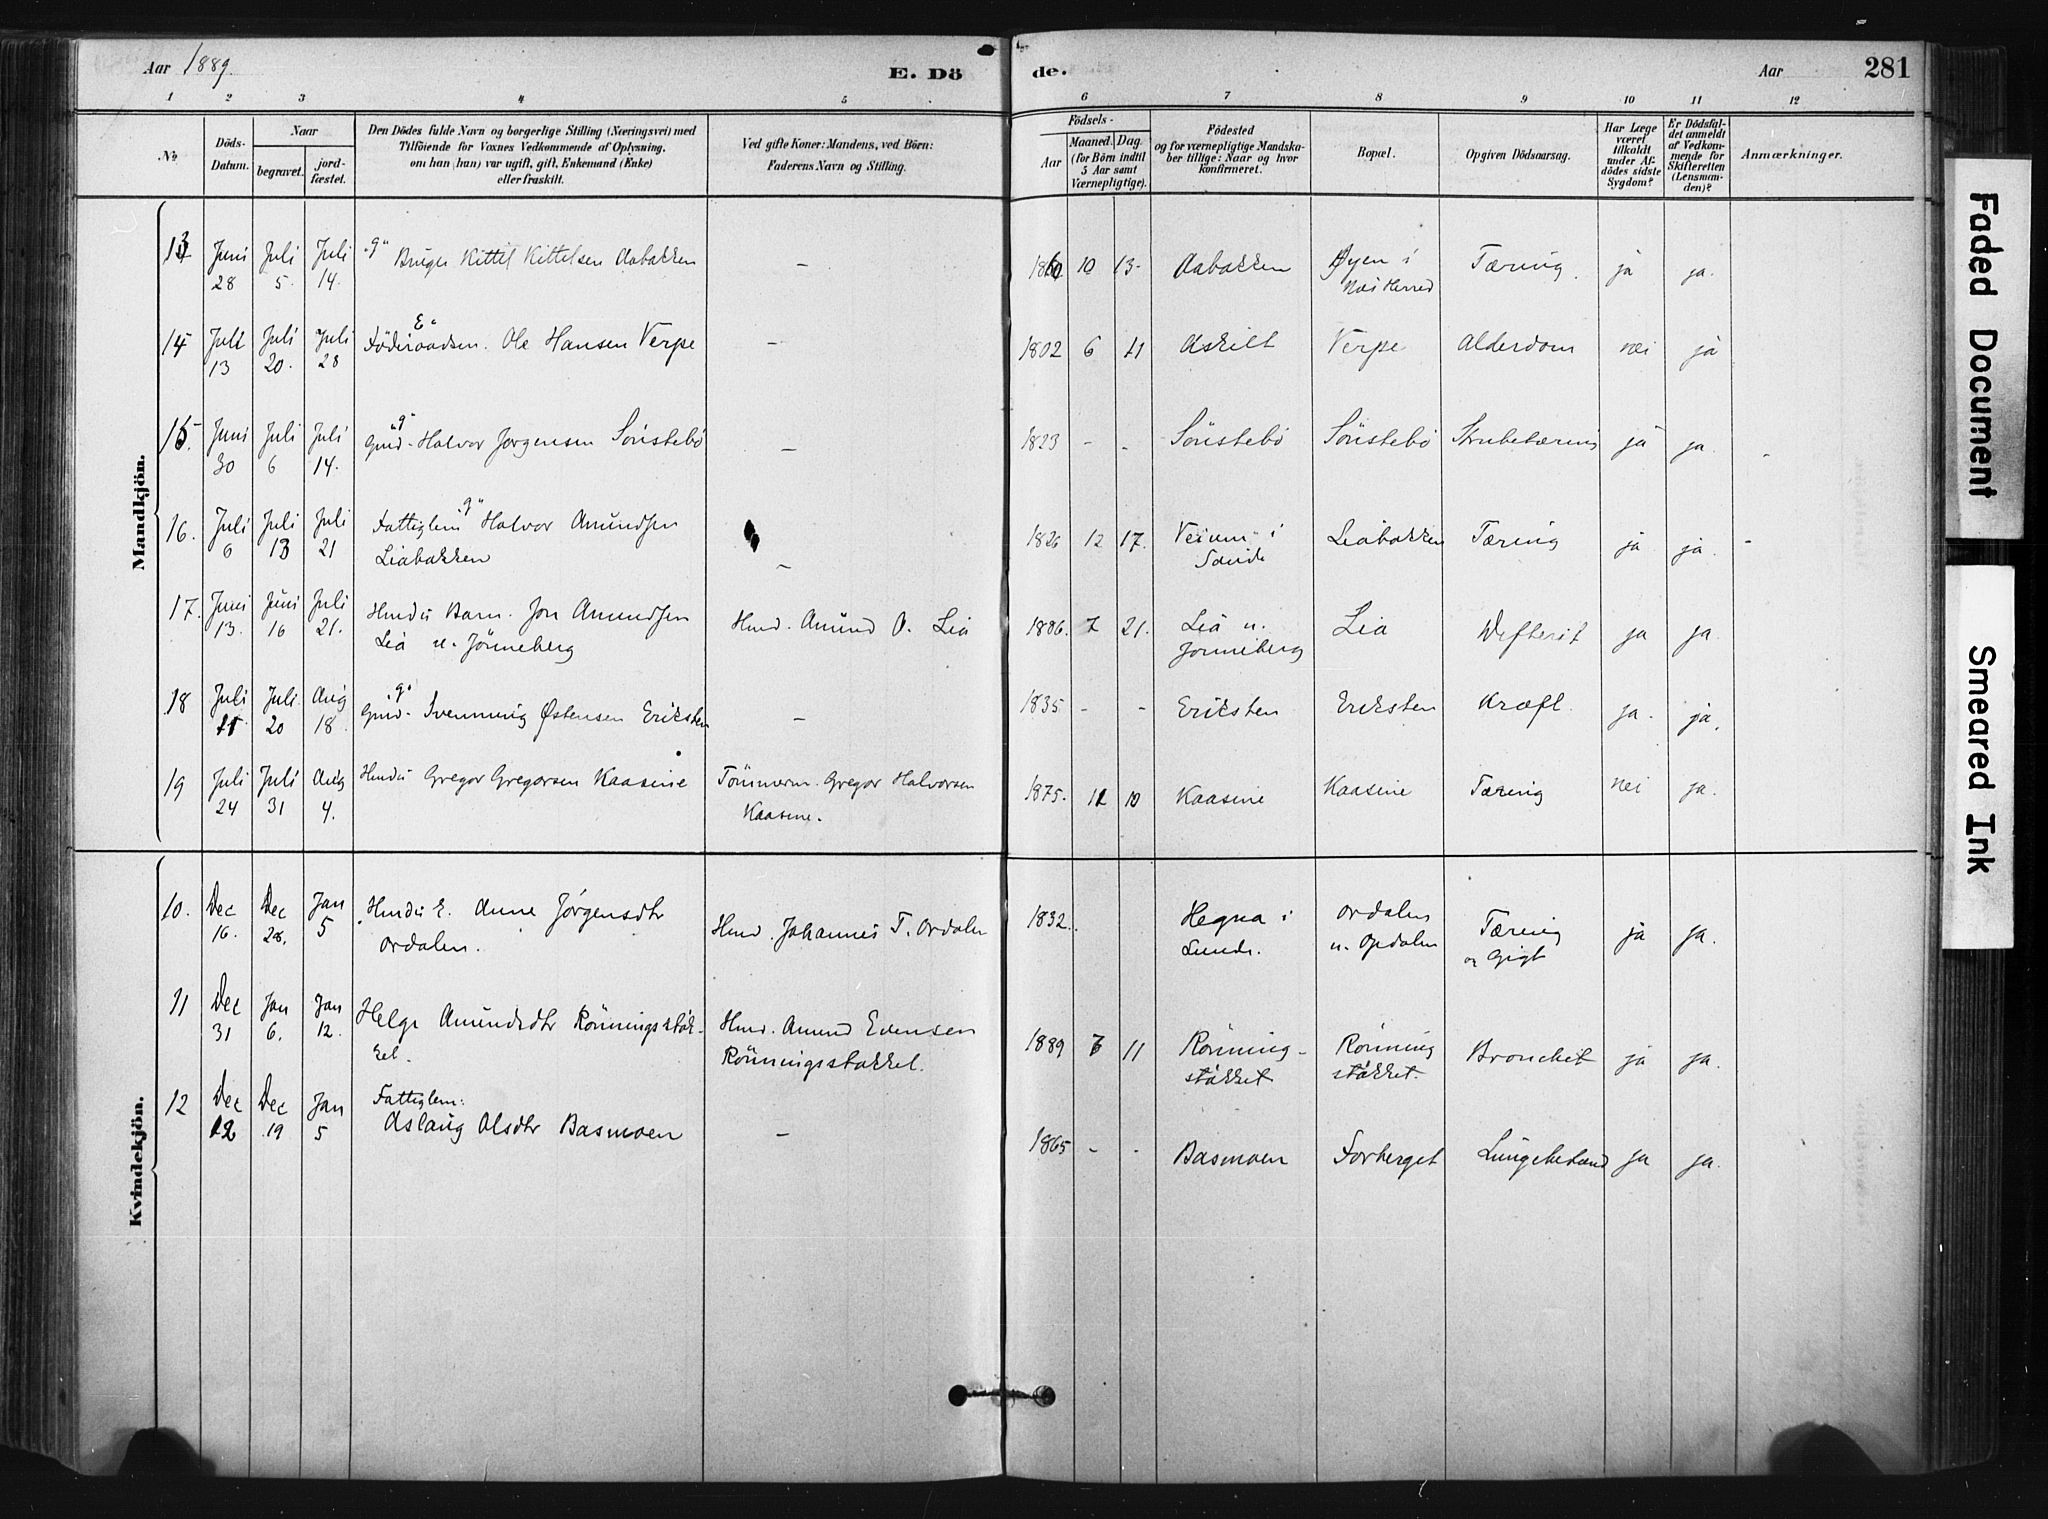 Aar 1889.
E. Dö
de.
Aar
281
1 2 3 4 5 6 7 8 9 10 11 12
No
Döds-
Datum.
Naar
begravet.
jord-
fæstet.
Den Dödes fulde Navn og borgerlige Stilling (Næringsvei) med
Tilföiende for Voxnes Vedkommende af Oplysning,
om han (hun) var ugift, gift, Enkemand (Enke)
eller fraskilt.
Ved gifte Koner: Mandens, ved Börn:
Faderens Navn og Stilling.
Födsels-
Aar
Maaned.
Dag.
(for Börn indtil
5 Aar samt
Værnepligtige).
Födested
og for værnepligtige Mandska-
ber tillige: Naar og hvor
konfirmeret.
Bopæl.
Opgiven Dödsaarsag.
Har Læge
været
tilkaldt
under Af-
dödes sidste
Sygdom?
Er Dödsfal-
det anmeldt
af Vedkom-
mende for
Skifteretten
(Lensman-
den)?
Anmærkninger.
Mandkjön.
13 Juni 28 Juli 5. Juli 14. "g" Bruger Kittil Kittelsen Aabakken – 1860 10 13. Aabakken Øyen i Næs Herred Tæring. ja ja.
14 Juli 13 Juli 20. Juli 28 "E" Föderaadsm. Ole Hansen Verpe – 1802 6 11 Askilt Verpe Alderdom nei ja
15. Juni 30 Juli 6 Juli 14. "g" Gmd. Halvor Jørgensen Sönstebö – 1823 - - Sönstebö Sönstebö Strubetæring ja ja.
16. Juli 6 Juli 13 Juli 21 Fattiglem "g" Halvor Amundsen
Liabakken – 1826 12 17. Veium i Sande Liabakken Tæring ja ja. -
17. Juni 13. Juni 16 Juli 21. Hmds Barn. Jon Amundsen
Lia u. Jönneberg Hmd. Amund O. Lia 1886. 7 21. Lia u. Jönneberg Lia Defterit ja ja.
18 Juli 15 Juli 20 Aug 18. "g" Gmd. Svenning Østensen Eriksten – 1835 - - Eriksten Eriksten Kræft. ja. ja.
19 Juli 24 Juli 31 Aug 4. Hmds Gregor Gregorsen Kaasine Tömmerm. Gregor Halvorsen
Kaasine. 1875. 12 10 Kaasine Kaasine Tæring nei ja.
Kvindekjön.
10. Dec 16. Dec 28. Jan 5 Hmds E. Anne Jørgensdtr
Ordalen. Hmd. Johannes T. Ordalen 1832. Hegna i Lunde. Ordalen u. Opdalen Tæring og Gigt ja ja.
11 Dec 31 Jan 6. Jan 12. Helge Amundsdtr Rönningsstök-
kel. Hmd. Amund Evensen
Rönningsstokkel. 1889 7 11 Rönning-
stökket Rönning
stökket. Bronchit ja ja.
12 Dec 12 Dec 19 Jan 5 Fattiglem:
Aslaug Olsdtr Basmoen – 1865 - - Basmoen Forberget Lungebetænd ja ja.
Faded Document
Smeared Ink